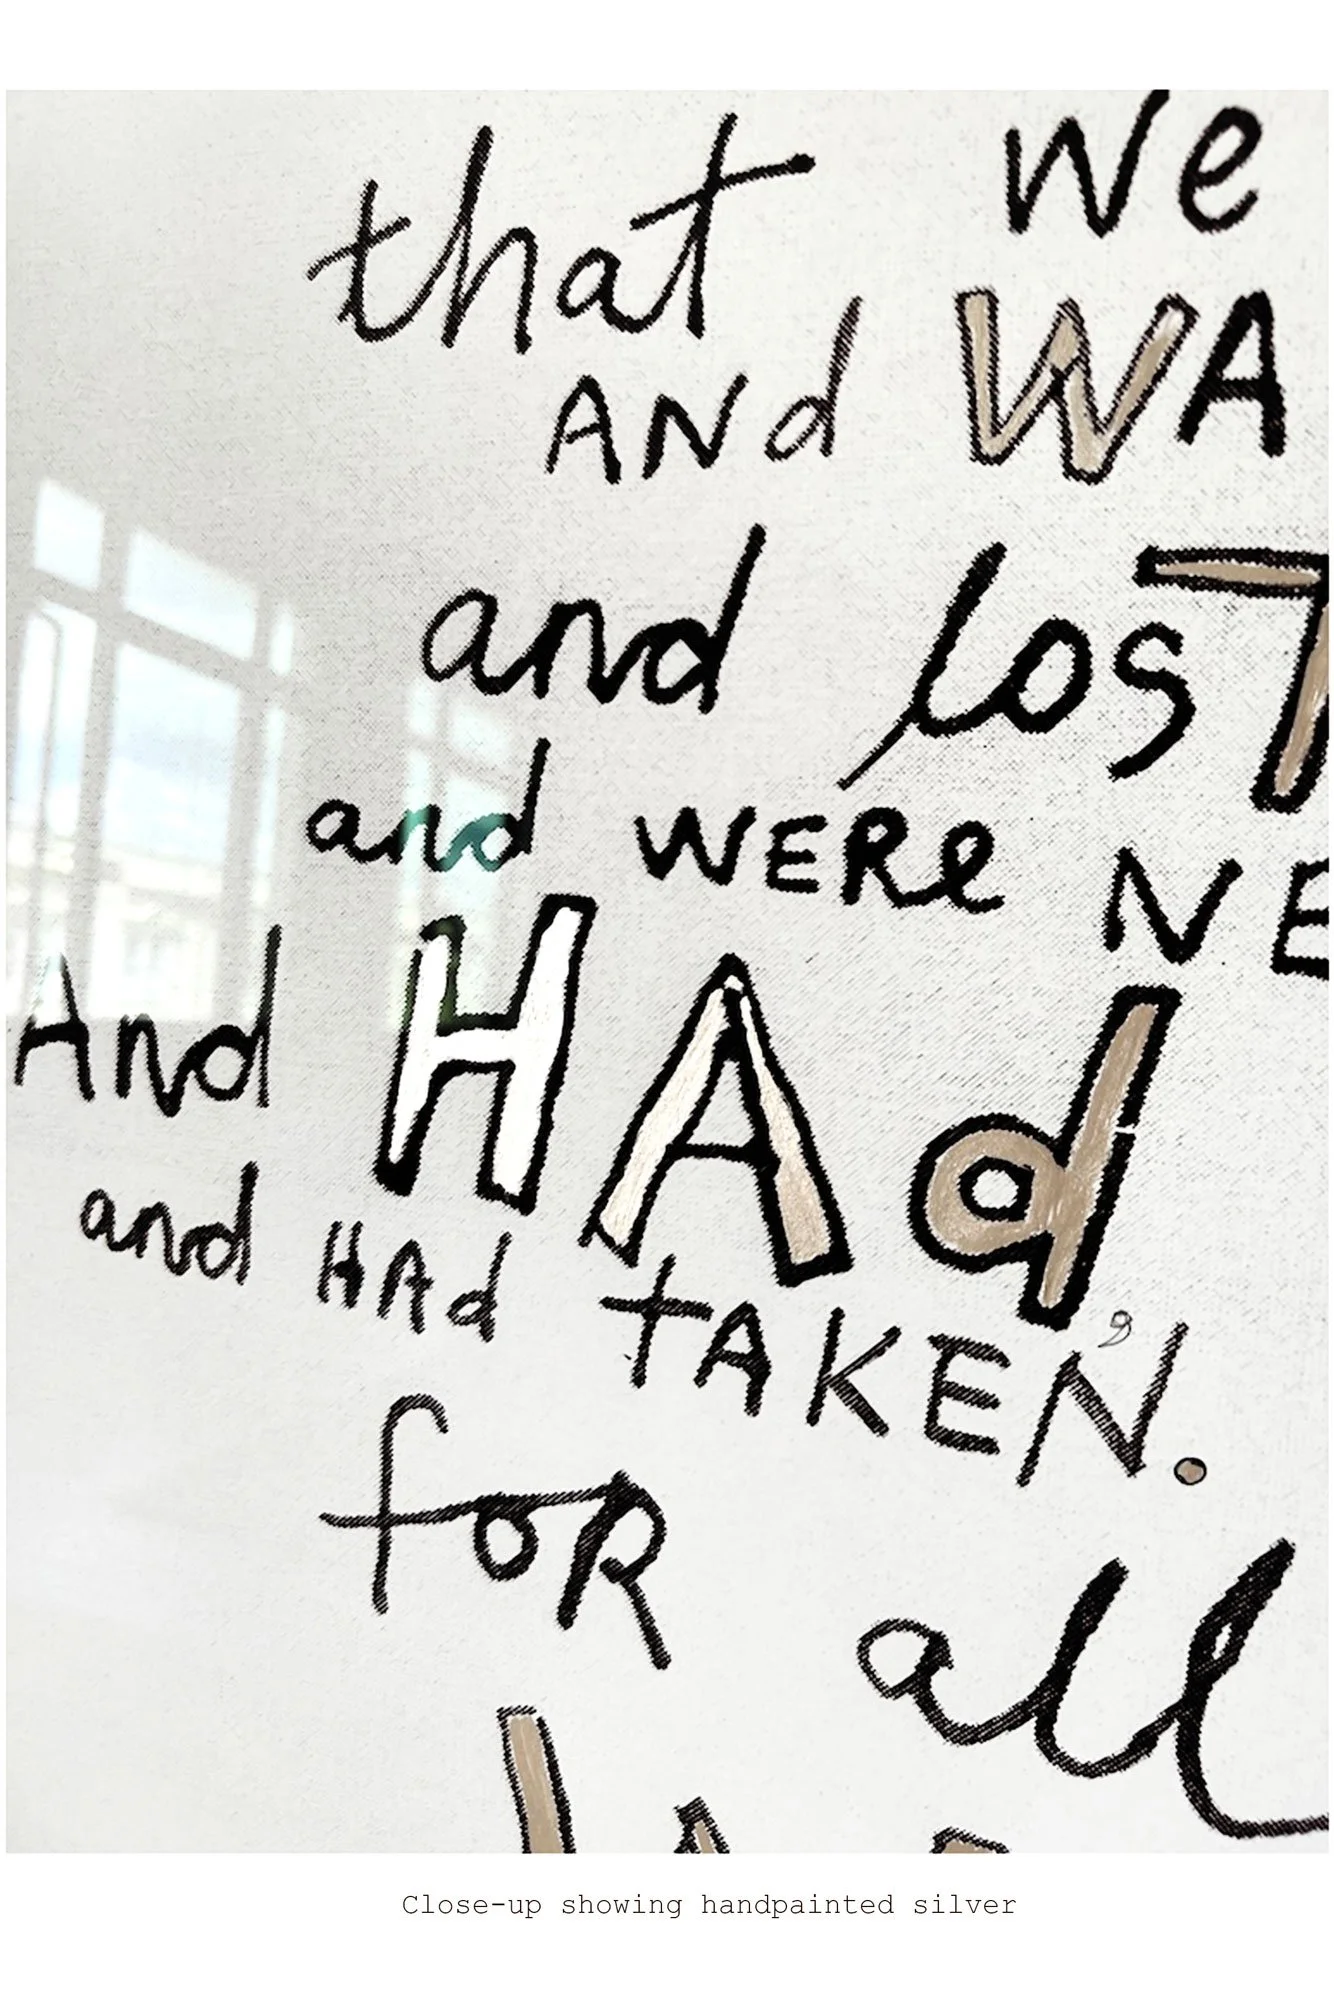 that we
ANd WA
and losT
and WERe NE
And HAd
and HAd tAKEN.
foR all
Close-up showing handpainted silver